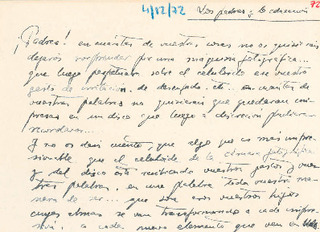 4/12/72 Los padres y la educación 72
¡Padres! en cuántas de vuestras cosas no os quisierais
dejaros sorprender por una máquina fotográfica...
que luego perpetuara sobre el celuloide ese vuestro
gesto de irritación, de desenfado, etc... en cuántas de
vuestras palabras no quisierais que quedaran im-
presas en un disco que luego a discreción pudieran
recordaros...
Y no os dais cuenta, que algo que es más impre-
sionable que el celuloide de la cámara fotográfica
y del disco está recibiendo vuestros gestos y vues-
tras palabras, en una palabra toda vuestra ma-
nera de ser... que son esos vuestros hijos
cuyas almas se van transformando a cada impre-
sión, a cada nuevo elemento que van en